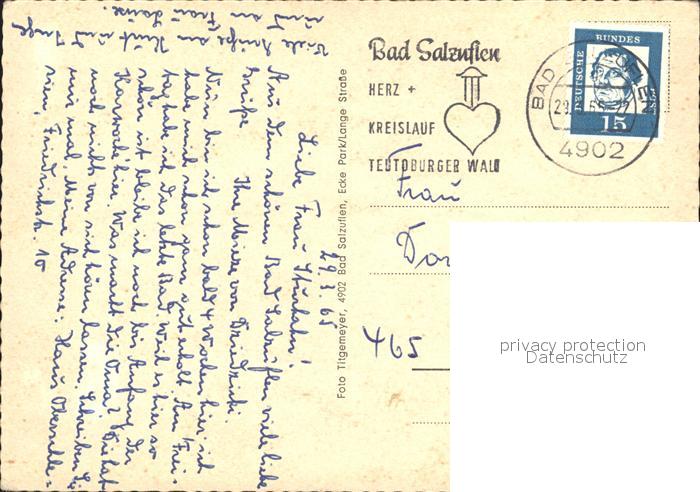 Bad Salzuflen
HERZ +
KREISLAUF
TEUTOBURGER WALD
DEUTSCHE
BUNDES
POST
15
BAD
4902
Frau
465
privacy protection
Datenschutz
Foto Titgemeyer, 4902 Bad Salzuflen, Ecke Park/Lange Straße
29.3.65
Liebe Frau
Aus dem schönen Bad Salzuflen viele liebe
Grüße Ihre von
Nun bin ich schon bald 4 Wochen hier, ich
habe mich schon ganz gut erholt. Am Frei-
tag hab ich das letzte Bad. Weil es hier so
schön ist bleibe ich noch bis Anfang der
Karwoche hier. Was macht die Oma? Sie hat
noch nichts von sich hören lassen. Schreiben Sie
mir mal. Meine Adresse: Haus
Friedrichstr. 10
Viele Grüße an Kurt und
und an Frau